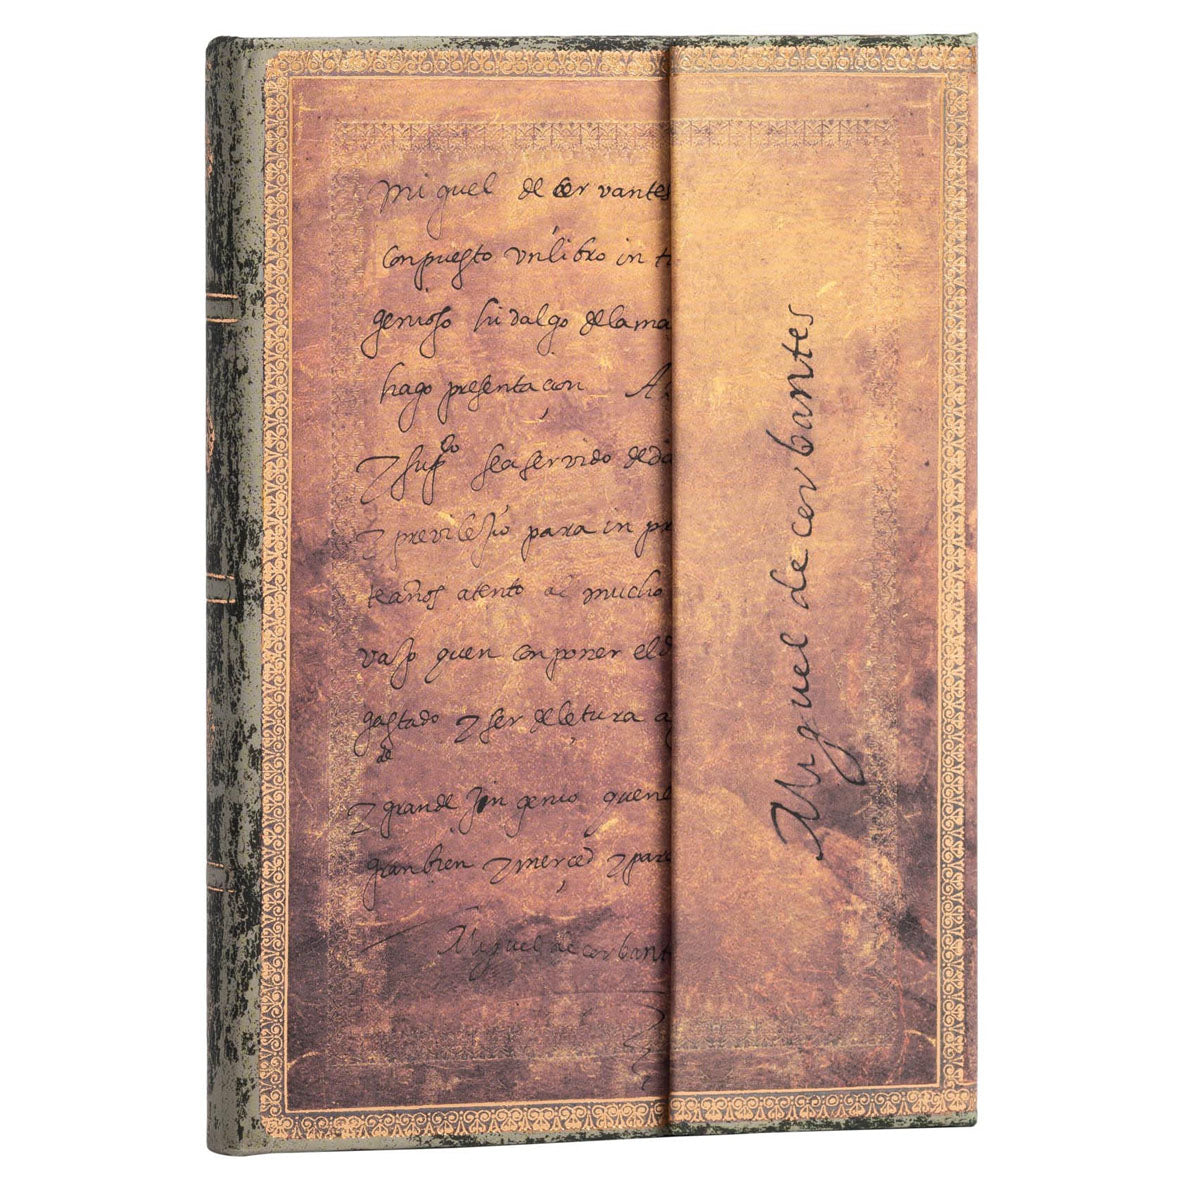 miguel de cervantes
conpuesto vnlibro in t
genioso hidalgo delama
hago presentacion A
lo
z sup seaservido deda
z previlejio para in pr
teaños atento al mucho
vajo quen conponer eld
gastado z ser deletura a
de
z grande yngenio quene
granbien z merced z para
Miguel de cerbant
Miguel de cerbantes